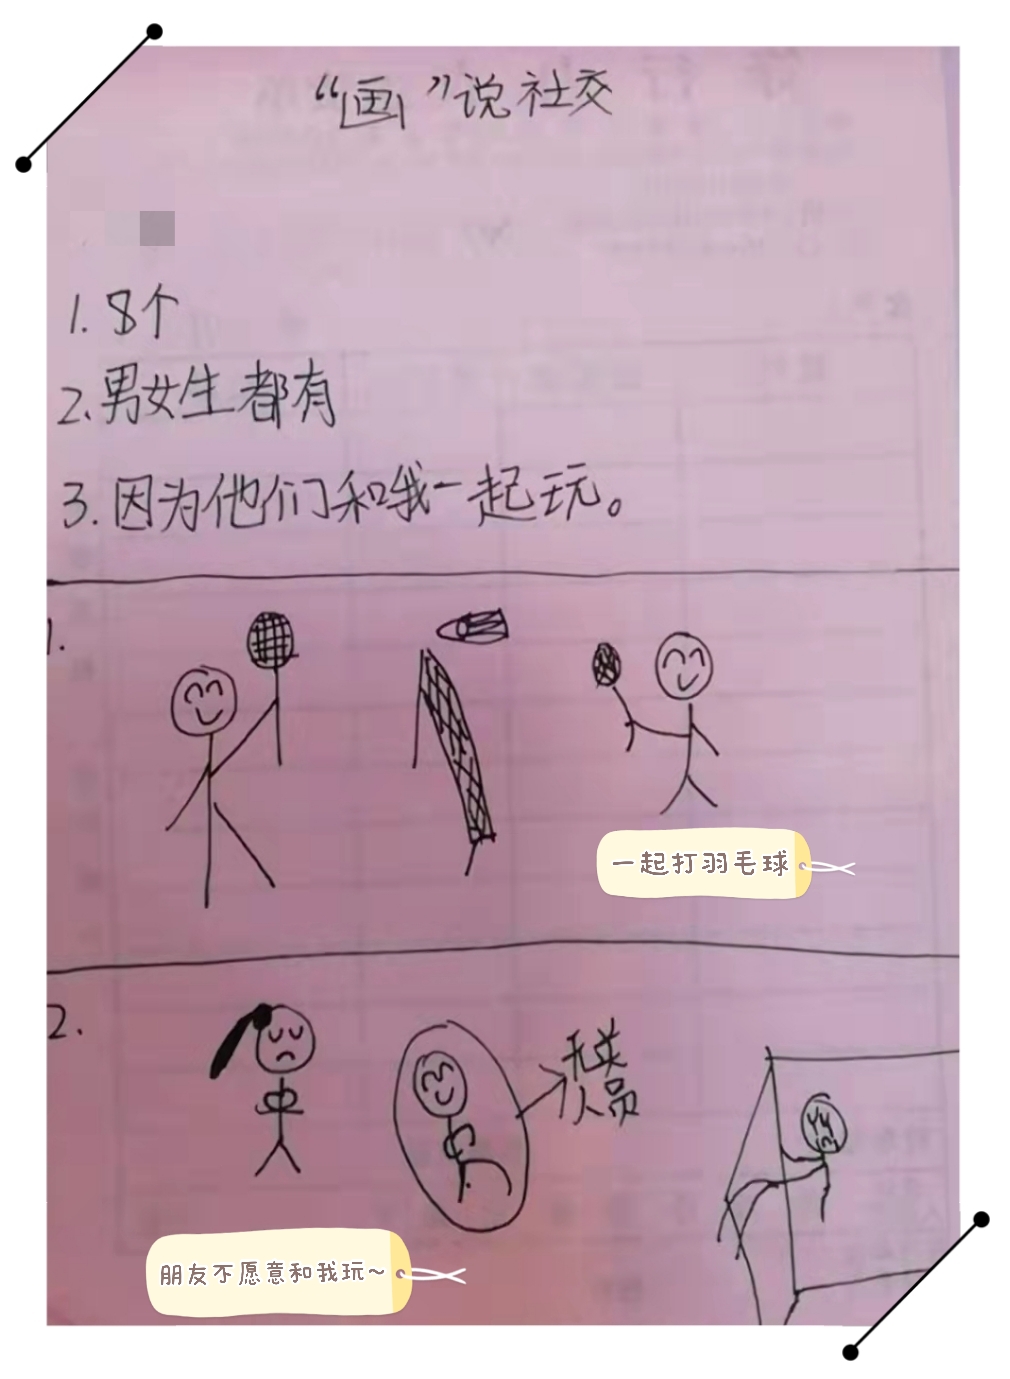 “画”说社交
1. 8个
2. 男女生都有
3. 因为他们和我一起玩。
1.
一起打羽毛球
2.
无关
人员
朋友不愿意和我玩~